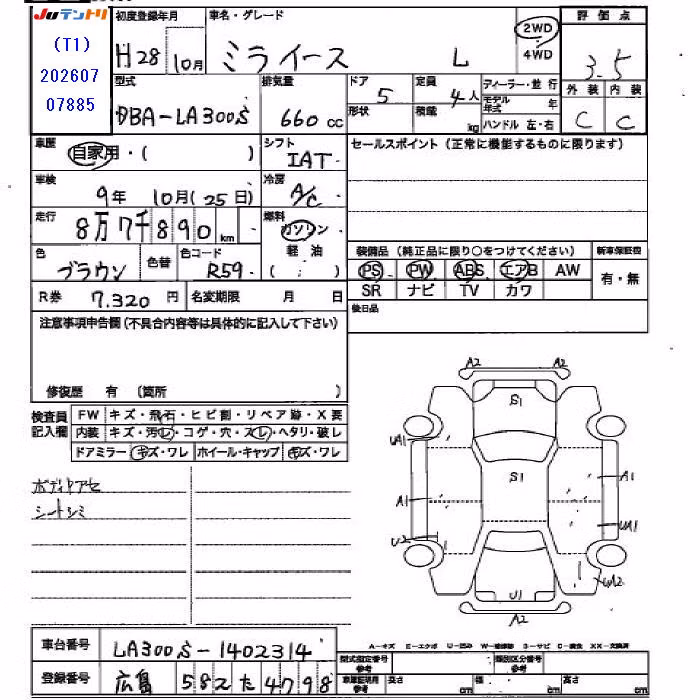 Juテントリ
(T1)
202607
07885
初度登録年月 車名・グレード 評価点
H28 10月 ミライース L 2WD 4WD 3.5
型式 排気量 ドア 定員 ディーラー・並行 外装 内装
DBA-LA300S 660 CC 5 4人 モデル年式 年 C C
形状 積載 kg ハンドル 左・右
車歴 シフト セールスポイント(正常に機能するものに限ります)
自家用・( ) IAT
車検 冷房
9年 10月(25日) A/C
走行 燃料
8万7千890km ガソリン
色 色替 色コード 軽油 装備品(純正品に限り○をつけてください) 新車保証書
ブラウン R59 ( : ) PS PW ABS エアB AW 有・無
R券 7.320円 名変期限 月 日 SR ナビ TV カワ
注意事項申告欄(不具合内容等は具体的に記入して下さい) 後日品
修復歴 有 (箇所 )
検査員記入欄 FW キズ・飛石・ヒビ割・リペア跡・X要
内装 キズ・汚レ・コゲ・穴・スレ・ヘタリ・破レ
ドアミラー キズ・ワレ ホイール・キャップ キズ・ワレ
ボディヤケ
シートシミ
A2 A2
S1
UA1
S1
A1 A1
UA1
U2
UA2
U1
A2
A-キズ E-エクボ U-凹み W-補修跡 S-サビ C-腐食 XX-交換済
車台番号 LA300S-1402314
登録番号 広島 582 た 4798
型式指定番号 参考 類別区分番号 参考
車庫証明用 参考 長さ cm 幅 cm 高さ cm